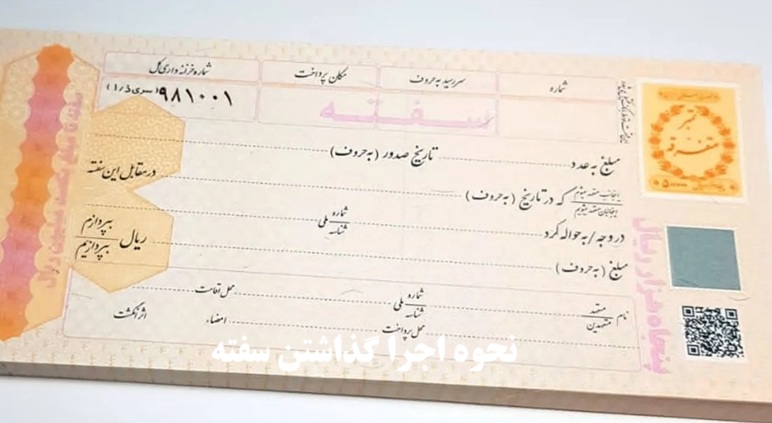 شماره
سررسید به حروف
مکان پرداخت
شماره خزانه داری کل
۹۸۱۰۰۱ (سری ز/۱)
سفته
مبلغ به عدد
تاریخ صدور (به حروف)
در مقابل این سفته
اینجانب متعهد میشوم
اینجانبان متعهد میشویم
که در تاریخ (به حروف)
در وجه / به حواله کرد
شماره
شناسه
ملی
مبلغ (به حروف)
ریال
بپردازم
بپردازیم
نام
متعهد
متعهدین
شماره
شناسه
ملی
محل اقامت
محل پرداخت
امضاء
اثر انگشت
تمبر
متفرقه
پنجاه هزار ریال
نحوه اجرا گذاشتن سفته